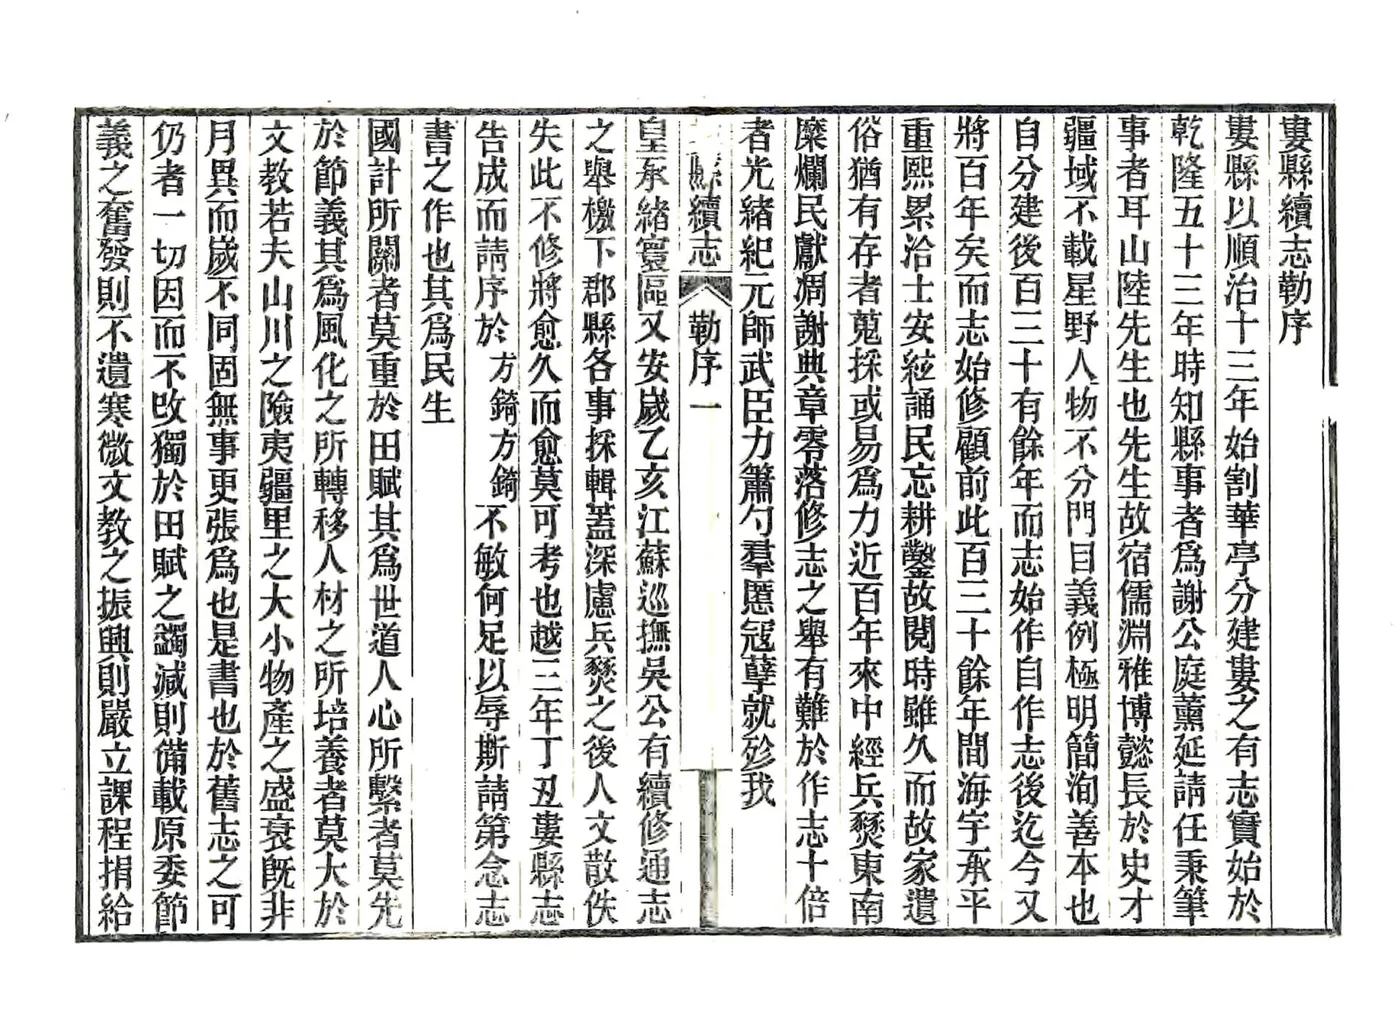 婁縣續志勒序
婁縣以順治十三年始割華亭分建婁之有志實始於
乾隆五十三年時知縣事者爲謝公庭薰延請任秉筆
事者耳山陸先生也先生故宿儒淵雅博懿長於史才
疆域不載星野人物不分門目義例極明簡洵善本也
自分建後百三十有餘年而志始作自作志後迄今又
將百年矣而志始修顧前此百三十餘年間海宇承平
重熙累洽士安絃誦民忘耕鑿故閱時雖久而故家遺
俗猶有存者蒐採或易爲力近百年來中經兵燹東南
糜爛民獻凋謝典章零落修志之舉有難於作志十倍
者光緒紀元師武臣力簫勺羣慝寇孽就殄我
縣續志 勒序 一
皇承緒寰區乂安歲乙亥江蘇巡撫吳公有續修通志
之舉檄下郡縣各事採輯蓋深慮兵燹之後人文散佚
失此不修將愈久而愈莫可考也越三年丁丑婁縣志
告成而請序於方錡方錡不敏何足以辱斯請第念志
書之作也其爲民生
國計所關者莫重於田賦其爲世道人心所繫者莫先
於節義其爲風化之所轉移人材之所培養者莫大於
文教若夫山川之險夷疆里之大小物產之盛衰既非
月異而歲不同固無事更張爲也是書也於舊志之可
仍者一切因而不改獨於田賦之蠲減則備載原委節
義之奮發則不遺寒微文教之振興則嚴立課程捐給